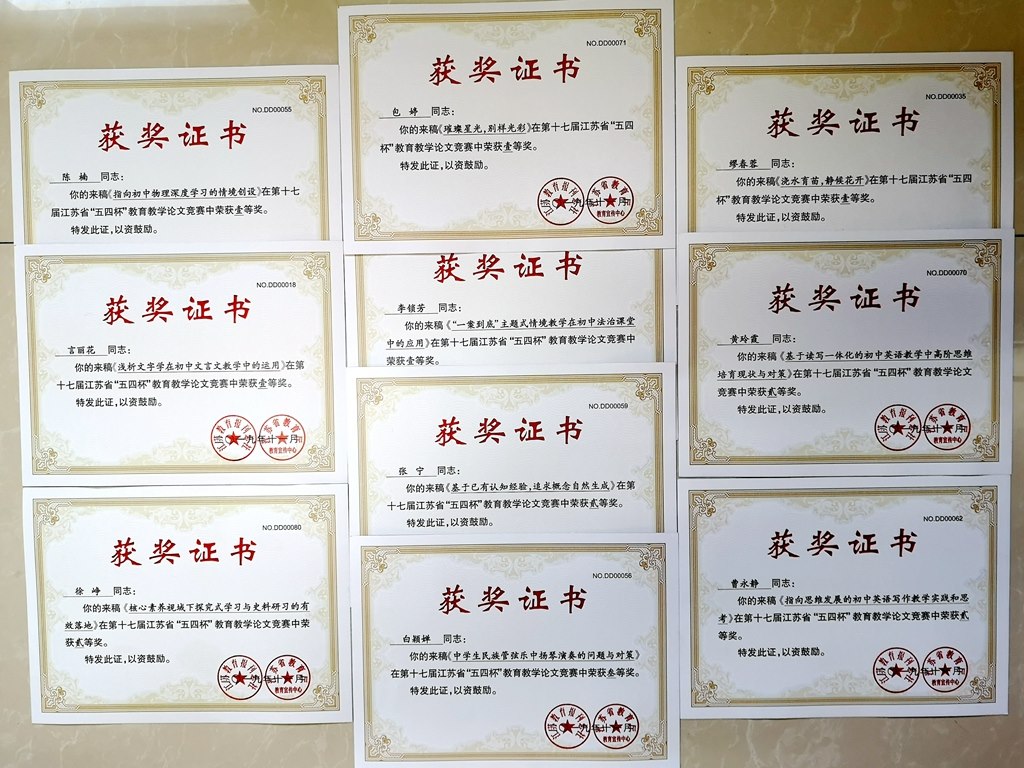 NO.DD00055
获奖证书
陈楠 同志：
你的来稿《指向初中物理深度学习的情境创设》在第十七
届江苏省“五四杯”教育教学论文竞赛中荣获壹等奖。
特发此证，以资鼓励。
NO.DD00071
获奖证书
包婷 同志：
你的来稿《璀璨星光，别样光彩》在第十七届江苏省“五四
杯”教育教学论文竞赛中荣获壹等奖。
特发此证，以资鼓励。
江苏教育报刊社
教育宣传中心
NO.DD00035
获奖证书
缪春蓉 同志：
你的来稿《浇水育苗，静候花开》在第十七届江苏省“五四
杯”教育教学论文竞赛中荣获壹等奖。
特发此证，以资鼓励。
NO.DD00018
获奖证书
言丽花 同志：
你的来稿《浅析文字学在初中文言文教学中的运用》在第
十七届江苏省“五四杯”教育教学论文竞赛中荣获壹等奖。
特发此证，以资鼓励。
江苏教育报刊社
教育宣传中心
获奖证书
李锁芳 同志：
你的来稿《“一案到底”主题式情境教学在初中法治课堂
中的应用》在第十七届江苏省“五四杯”教育教学论文竞赛中
荣获壹等奖。
NO.DD00070
获奖证书
黄玲霞 同志：
你的来稿《基于读写一体化的初中英语教学中高阶思维
培育现状与对策》在第十七届江苏省“五四杯”教育教学论文
竞赛中荣获贰等奖。
特发此证，以资鼓励。
江苏教育报刊社
教育宣传中心
NO.DD00059
获奖证书
张宁 同志：
你的来稿《基于已有认知经验，追求概念自然生成》在第
十七届江苏省“五四杯”教育教学论文竞赛中荣获贰等奖。
特发此证，以资鼓励。
NO.DD00080
获奖证书
徐峰 同志：
你的来稿《核心素养视域下探究式学习与史料研习的有
效落地》在第十七届江苏省“五四杯”教育教学论文竞赛中荣
获贰等奖。
特发此证，以资鼓励。
江苏教育报刊社
教育宣传中心
NO.DD00056
获奖证书
白颖婵 同志：
你的来稿《中学生民族管弦乐中扬琴演奏的问题与对策》
在第十七届江苏省“五四杯”教育教学论文竞赛中荣获叁等奖。
特发此证，以资鼓励。
江苏教育报刊社
教育宣传中心
NO.DD00062
获奖证书
曹永静 同志：
你的来稿《指向思维发展的初中英语写作教学实践和思
考》在第十七届江苏省“五四杯”教育教学论文竞赛中荣获贰
等奖。
特发此证，以资鼓励。
江苏教育报刊社
教育宣传中心